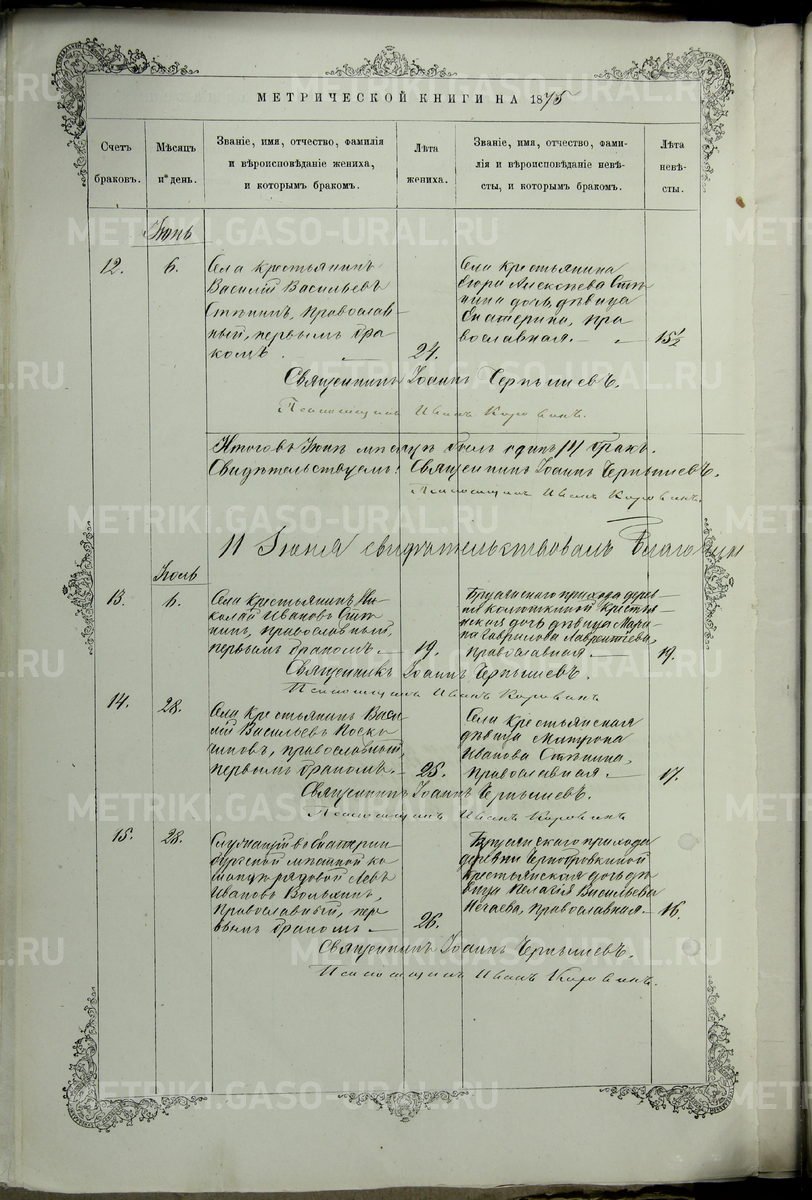 МЕТРИЧЕСКОЙ КНИГИ НА 1875
Счетъ
браковъ.
Мѣсяцъ
и день.
Званіе, имя, отчество, фамилія
и вѣроисповѣданіе жениха,
и которымъ бракомъ.
Лѣта
жениха.
Званіе, имя, отчество, фами-
лія и вѣроисповѣданіе невѣ-
сты, и которымъ бракомъ.
Лѣта
невѣ-
сты.
METRIKI.GASO-URAL.RU
Іюнь
12.
6.
Села крестьянинъ
Василій Васильевъ
православ-
ный, первымъ бра
комъ.
24.
Села крестьянина
Алексѣева
дочь дѣвица
Екатерина, пра
вославная.
15 1/2
Священникъ Іоаннъ Чернышевъ.
Псаломщикъ Иванъ Коровинъ.
Итого въ Іюнѣ мѣсяцѣ былъ одинъ /1/ бракъ.
Свидѣтельствуемъ: Священникъ Іоаннъ Чернышевъ.
Псаломщикъ Иванъ Коровинъ.
11 Іюня свидѣтельствовалъ Благочин
Іюль
13.
6.
Села крестьянинъ Ни-
колай Ивановъ
православный,
первымъ бракомъ.
19.
прихода дерев
ни крестья
нская дочь дѣвица Мари
на Гаврилова Лаврентьева,
православная.
19.
Священникъ Іоаннъ Чернышевъ.
Псаломщикъ Иванъ Коровинъ
14.
28.
Села крестьянинъ Васи
лій Васильевъ
православный,
первымъ бракомъ.
25.
Села крестьянская
дѣвица Матрона
Иванова
православная.
17.
Священникъ Іоаннъ Чернышевъ.
Псаломщикъ Иванъ Коровинъ
15.
28.
Служащій въ Екатерин
бургской мѣстной ко
мандѣ рядовой Левъ
Ивановъ
православный, пер
вымъ бракомъ
26.
прихода
деревни
крестьянская дочь дѣ
вица Пелагія Васильева
Нечаева, православная.
16.
Священникъ Іоаннъ Чернышевъ.
Псаломщикъ Иванъ Коровинъ.